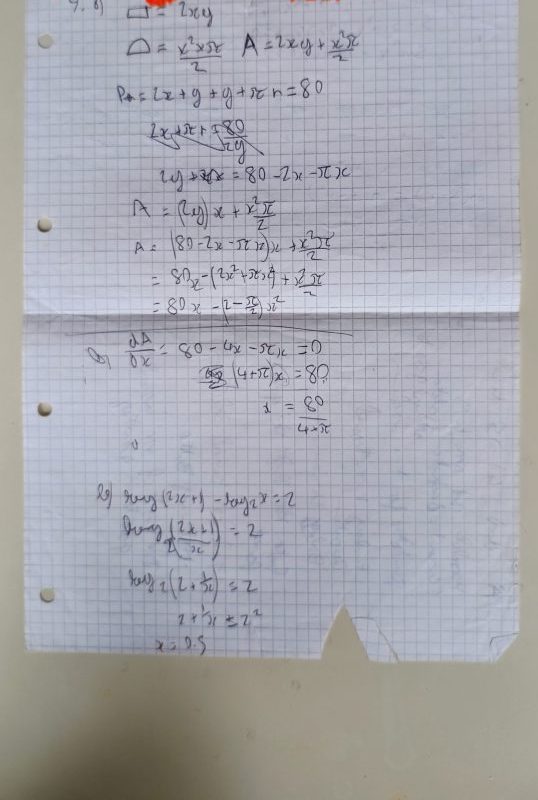 9. a) ▭ = 2xy
⌓ = x²π/2 A = 2xy + x²π/2
P = 2x + y + y + π x = 80
2y = 80 - 2x - πx
A = (2y) x + x²π/2
A = (80 - 2x - πx)x + x²π/2
= 80x - (2x² + πx²) + x²π/2
= 80x - (2 - π/2)x²
b) dA/dx = 80 - 4x - πx = 0
80 = x(π+4)
x = 80/(4+π)
log (2x+1) - log₂x = 2
log₂((2x+1)/x) = 2
log₂(2 + 1/x) = 2
2 + 1/x = 2²
x = 0.5